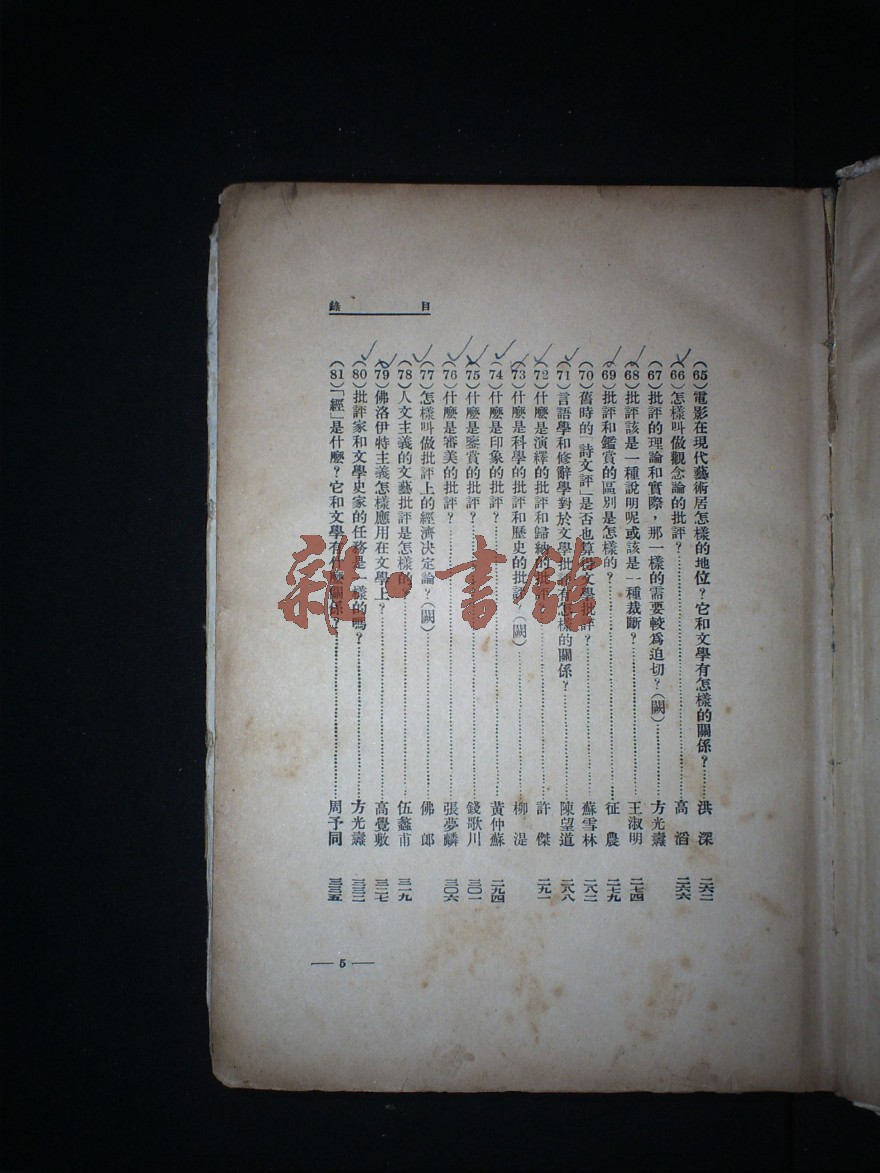 目錄
(65)電影在現代藝術居怎樣的地位？它和文學有怎樣的關係？……洪深 二六二
(66)怎樣叫做觀念論的批評？……高滔 二六六
(67)批評的理論和實際，那一樣的需要較爲迫切？(闕)……方光燾
(68)批評該是一種說明呢或該是一種裁斷？……王淑明 二七四
(69)批評和鑑賞的區別是怎樣的？……征農 二七九
(70)舊時的「詩文評」是否也算得文學批評？……蘇雪林 二八二
(71)言語學和修辭學對於文學批評有怎樣的關係？……陳望道 二八八
(72)什麼是演繹的批評和歸納的批評？……許傑 二九一
(73)什麼是科學的批評和歷史的批評？(闕)……柳湜
(74)什麼是印象的批評？……黃仲蘇 二九四
(75)什麼是鑒賞的批評？……錢歌川 三〇一
(76)什麼是審美的批評？……張夢麟 三〇六
(77)怎樣叫做批評上的經濟决定論？(闕)……佛郎
(78)人文主義的文藝批評是怎樣的……伍蠡甫 三一九
(79)佛洛伊特主義怎樣應用在文學上？……高覺敷 三二七
(80)批評家和文學史家的任務是一樣的嗎？……方光燾 三三二
(81)「經」是什麼？它和文學有什麼關係？……周予同 三三五
— 5 —
雜·書館